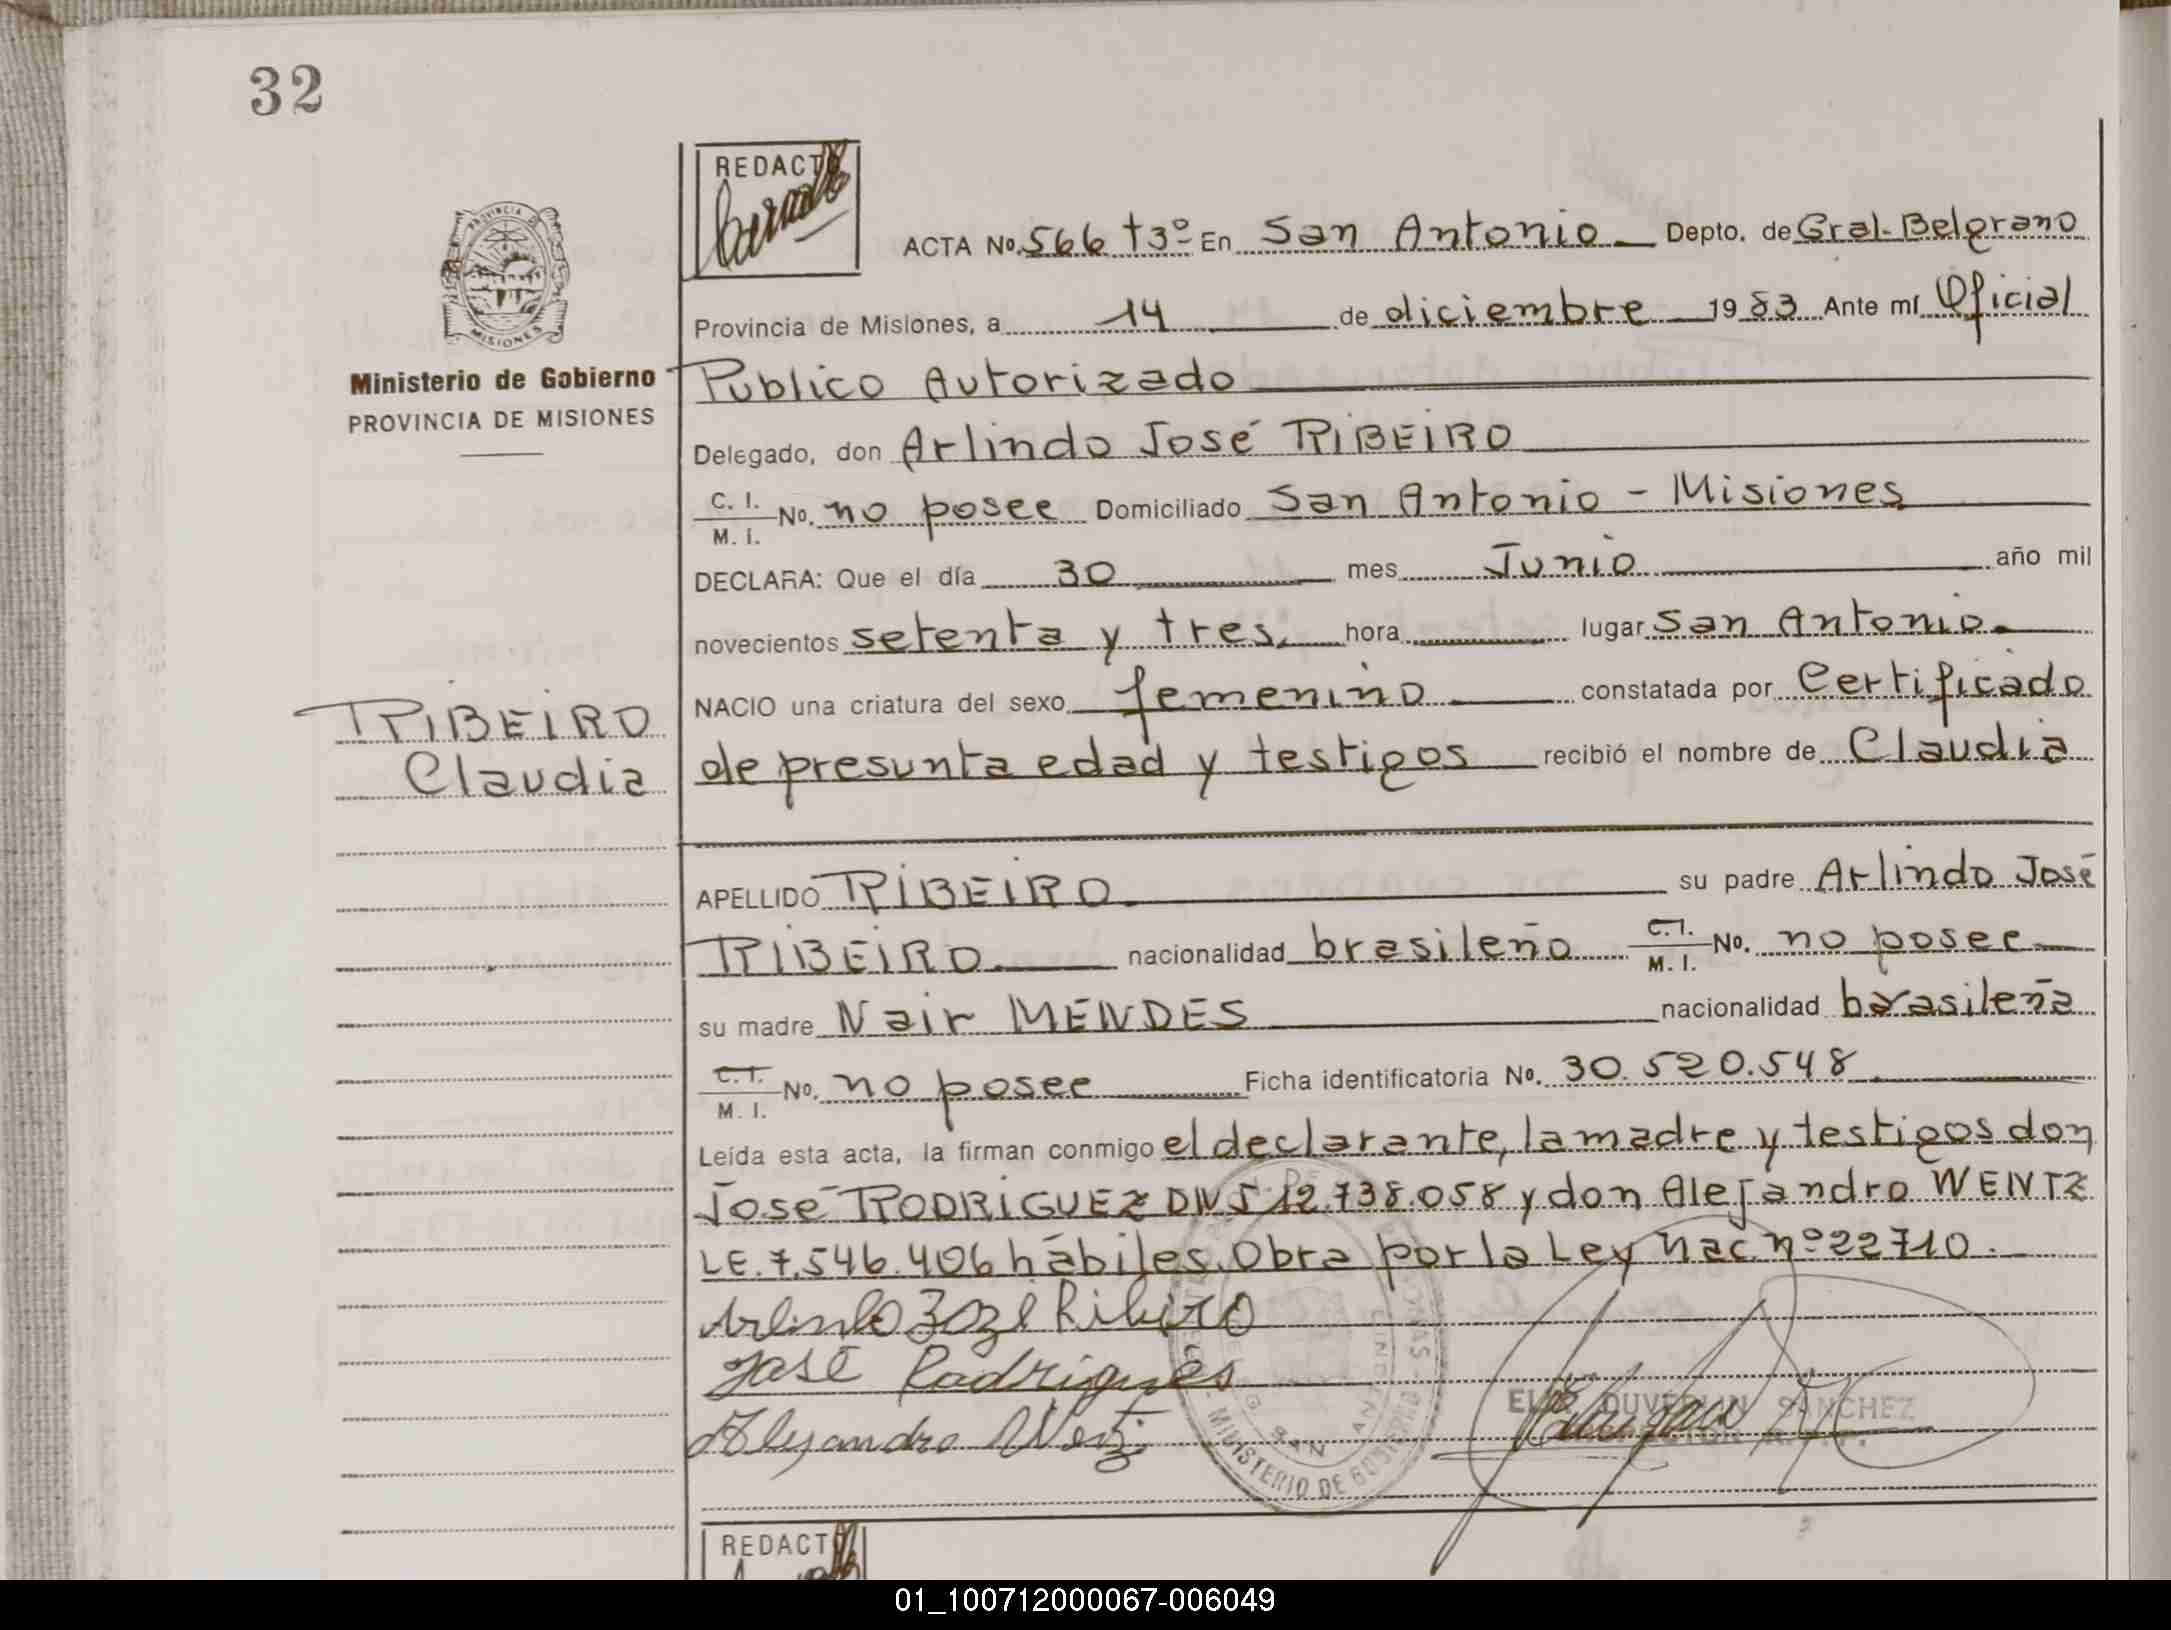 32
REDACTO
ACTA No. 566 t3º En San Antonio Depto. de Gral. Belgrano
PROVINCIA DE
MISIONES
Provincia de Misiones, a 14 de diciembre 1983 Ante mí Oficial
Ministerio de Gobierno
PROVINCIA DE MISIONES
Publico Autorizado
Delegado, don Arlindo José RIBEIRO
C. I.
M. I. No. no posee Domiciliado San Antonio - Misiones
DECLARA: Que el día 30 mes Junio año mil
novecientos setenta y tres. hora lugar San Antonio.
NACIO una criatura del sexo femenino constatada por Certificado
RIBEIRO
Claudia
de presunta edad y testigos recibió el nombre de Claudia
APELLIDO RIBEIRO. su padre Arlindo José
RIBEIRO. nacionalidad brasileño C. I.
M. I. No. no posee
su madre Nair MENDES nacionalidad brasileña
C. I.
M. I. No. no posee Ficha identificatoria No. 30.520.548
Leída esta acta, la firman conmigo el declarante, la madre y testigos don
José RODRIGUEZ DNI 12.738.058 y don Alejandro WENTZ
LE.7.546.406 hábiles. Obra por la Ley nac nº 22710.
Arlindo Joze Ribeiro
José Rodrigues
Alejandro Wentz
MINISTERIO DE GOBIERNO
SAN ANT
DUVERLIN SANCHEZ
REDACTO
01_100712000067-006049